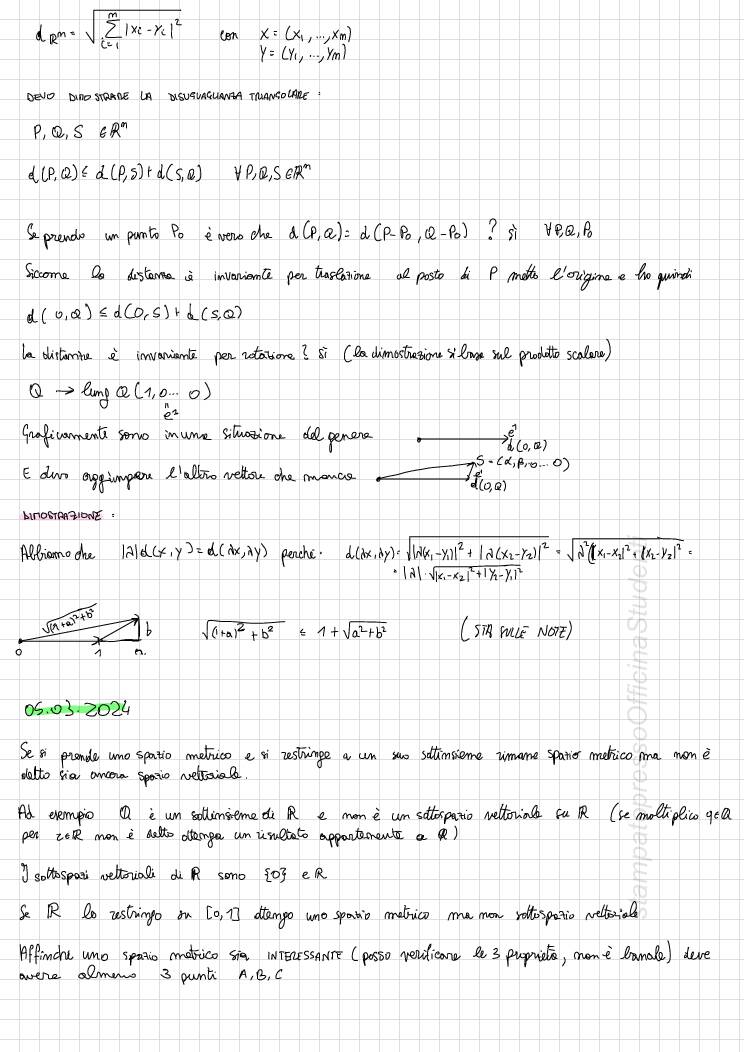 d_{ℝ^m} = √(∑_{i=1}^{m} |x_i - y_i|²) con x = (x_1, ..., x_m)
y = (y_1, ..., y_m)
DEVO DIMOSTRARE LA DISUGUAGLIANZA TRIANGOLARE :
P, Q, S ∈ ℝ^n
d(P,Q) ≤ d(P,S) + d(S,Q) ∀ P,Q,S ∈ ℝ^n
Se prendo un punto P_0 è vero che d(P,Q) = d(P-P_0, Q-P_0) ? sì ∀ P,Q,P_0
Siccome la distanza è invariante per traslazione al posto di P metto l'origine e ho quindi
d(0,Q) ≤ d(0,S) + d(S,Q)
La distanza è invariante per rotazione ? sì (la dimostrazione si basa sul prodotto scalare)
Q → lung Q (1,0... 0)
e^1
Graficamente sono in una situazione del genere
e^1
d(0,Q)
E devo aggiungere l'altro vettore che manca
S = (α,β,0...0)
e^1
d(0,Q)
DIMOSTRAZIONE :
Abbiamo che |λ|d(x,y) = d(λx,λy) perché. d(λx,λy) = √(|λ(x_1-y_1)|² + |λ(x_2-y_2)|²) = √(λ²(|x_1-x_2|² + |x_2-y_2|²) =
= |λ| · √(|x_1-x_2|² + |y_2-y_1|²)
√((1+a)²+b²)
b
0 1 a
√((1+a)² + b²) ≤ 1 + √(a²+b²) (STA SULLE NOTE)
05.03.2024
Se si prende uno spazio metrico e si restringe a un suo sottinsieme rimane spazio metrico ma non è
detto sia ancora spazio vettoriale.
Ad esempio ℚ è un sottinsieme di ℝ e non è un sottospazio vettoriale su ℝ (se moltiplico q∈ℚ
per r∈ℝ non è detto ottenga un risultato appartenente a ℚ)
I sottospazi vettoriali di ℝ sono {0} e ℝ
Se ℝ lo restringo su [0,1] ottengo uno spazio metrico ma non sottospazio vettoriale
Affinché uno spazio metrico sia INTERESSANTE (posso verificare le 3 proprietà, non è banale) deve
avere almeno 3 punti A,B,C
stampato presso Officina Studenti